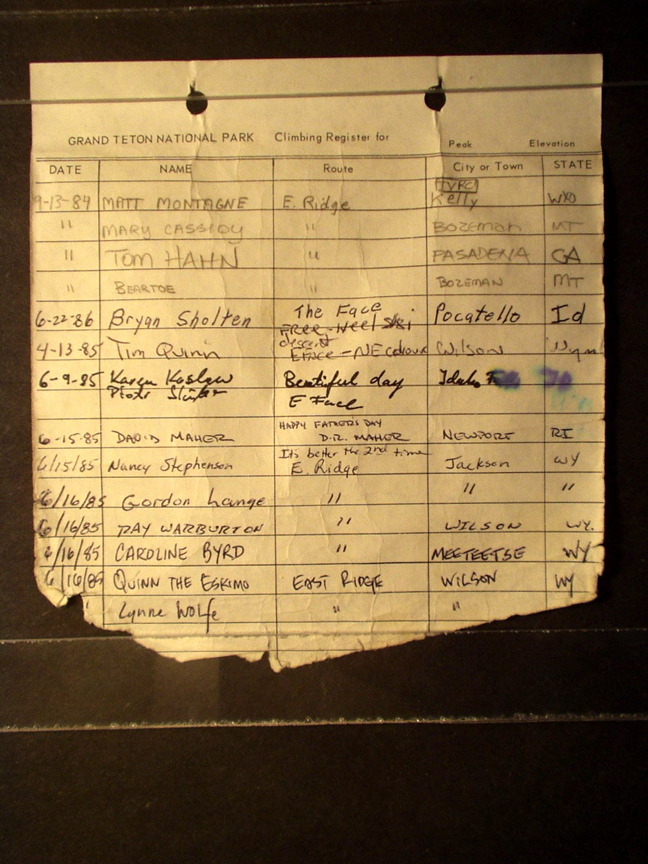 GRAND TETON NATIONAL PARK Climbing Register for Peak Elevation
DATE NAME Route City or Town STATE
9-13-84 MATT MONTAGNE E. Ridge Kelly WYO
" MARY CASSIDY " BOZEMAN MT
" TOM HAHN " PASADENA CA
" BEARTOE " BOZEMAN MT
6-22-86 Bryan Sholten The Face Pocatello Id
FREE-Heel Ski
descent
4-13-85 Tim Quinn Wilson
6-9-85 Karen Beautiful day Idaho
Piotr E Face
HAPPY FATHERS DAY
6-15-85 DAVID MAHER D.R. MAHER NEWPORT RI
Its better the 2nd time
6/15/85 Nancy Stephenson E. Ridge Jackson WY
6/16/85 Gordon Lange " " "
6/16/85 RAY WARBURTON " WILSON WY.
6/16/85 CAROLINE BYRD " MEETEETSE WY
6/16/85 QUINN THE ESKIMO EAST RIDGE WILSON WY
" Lynne Wolfe " "